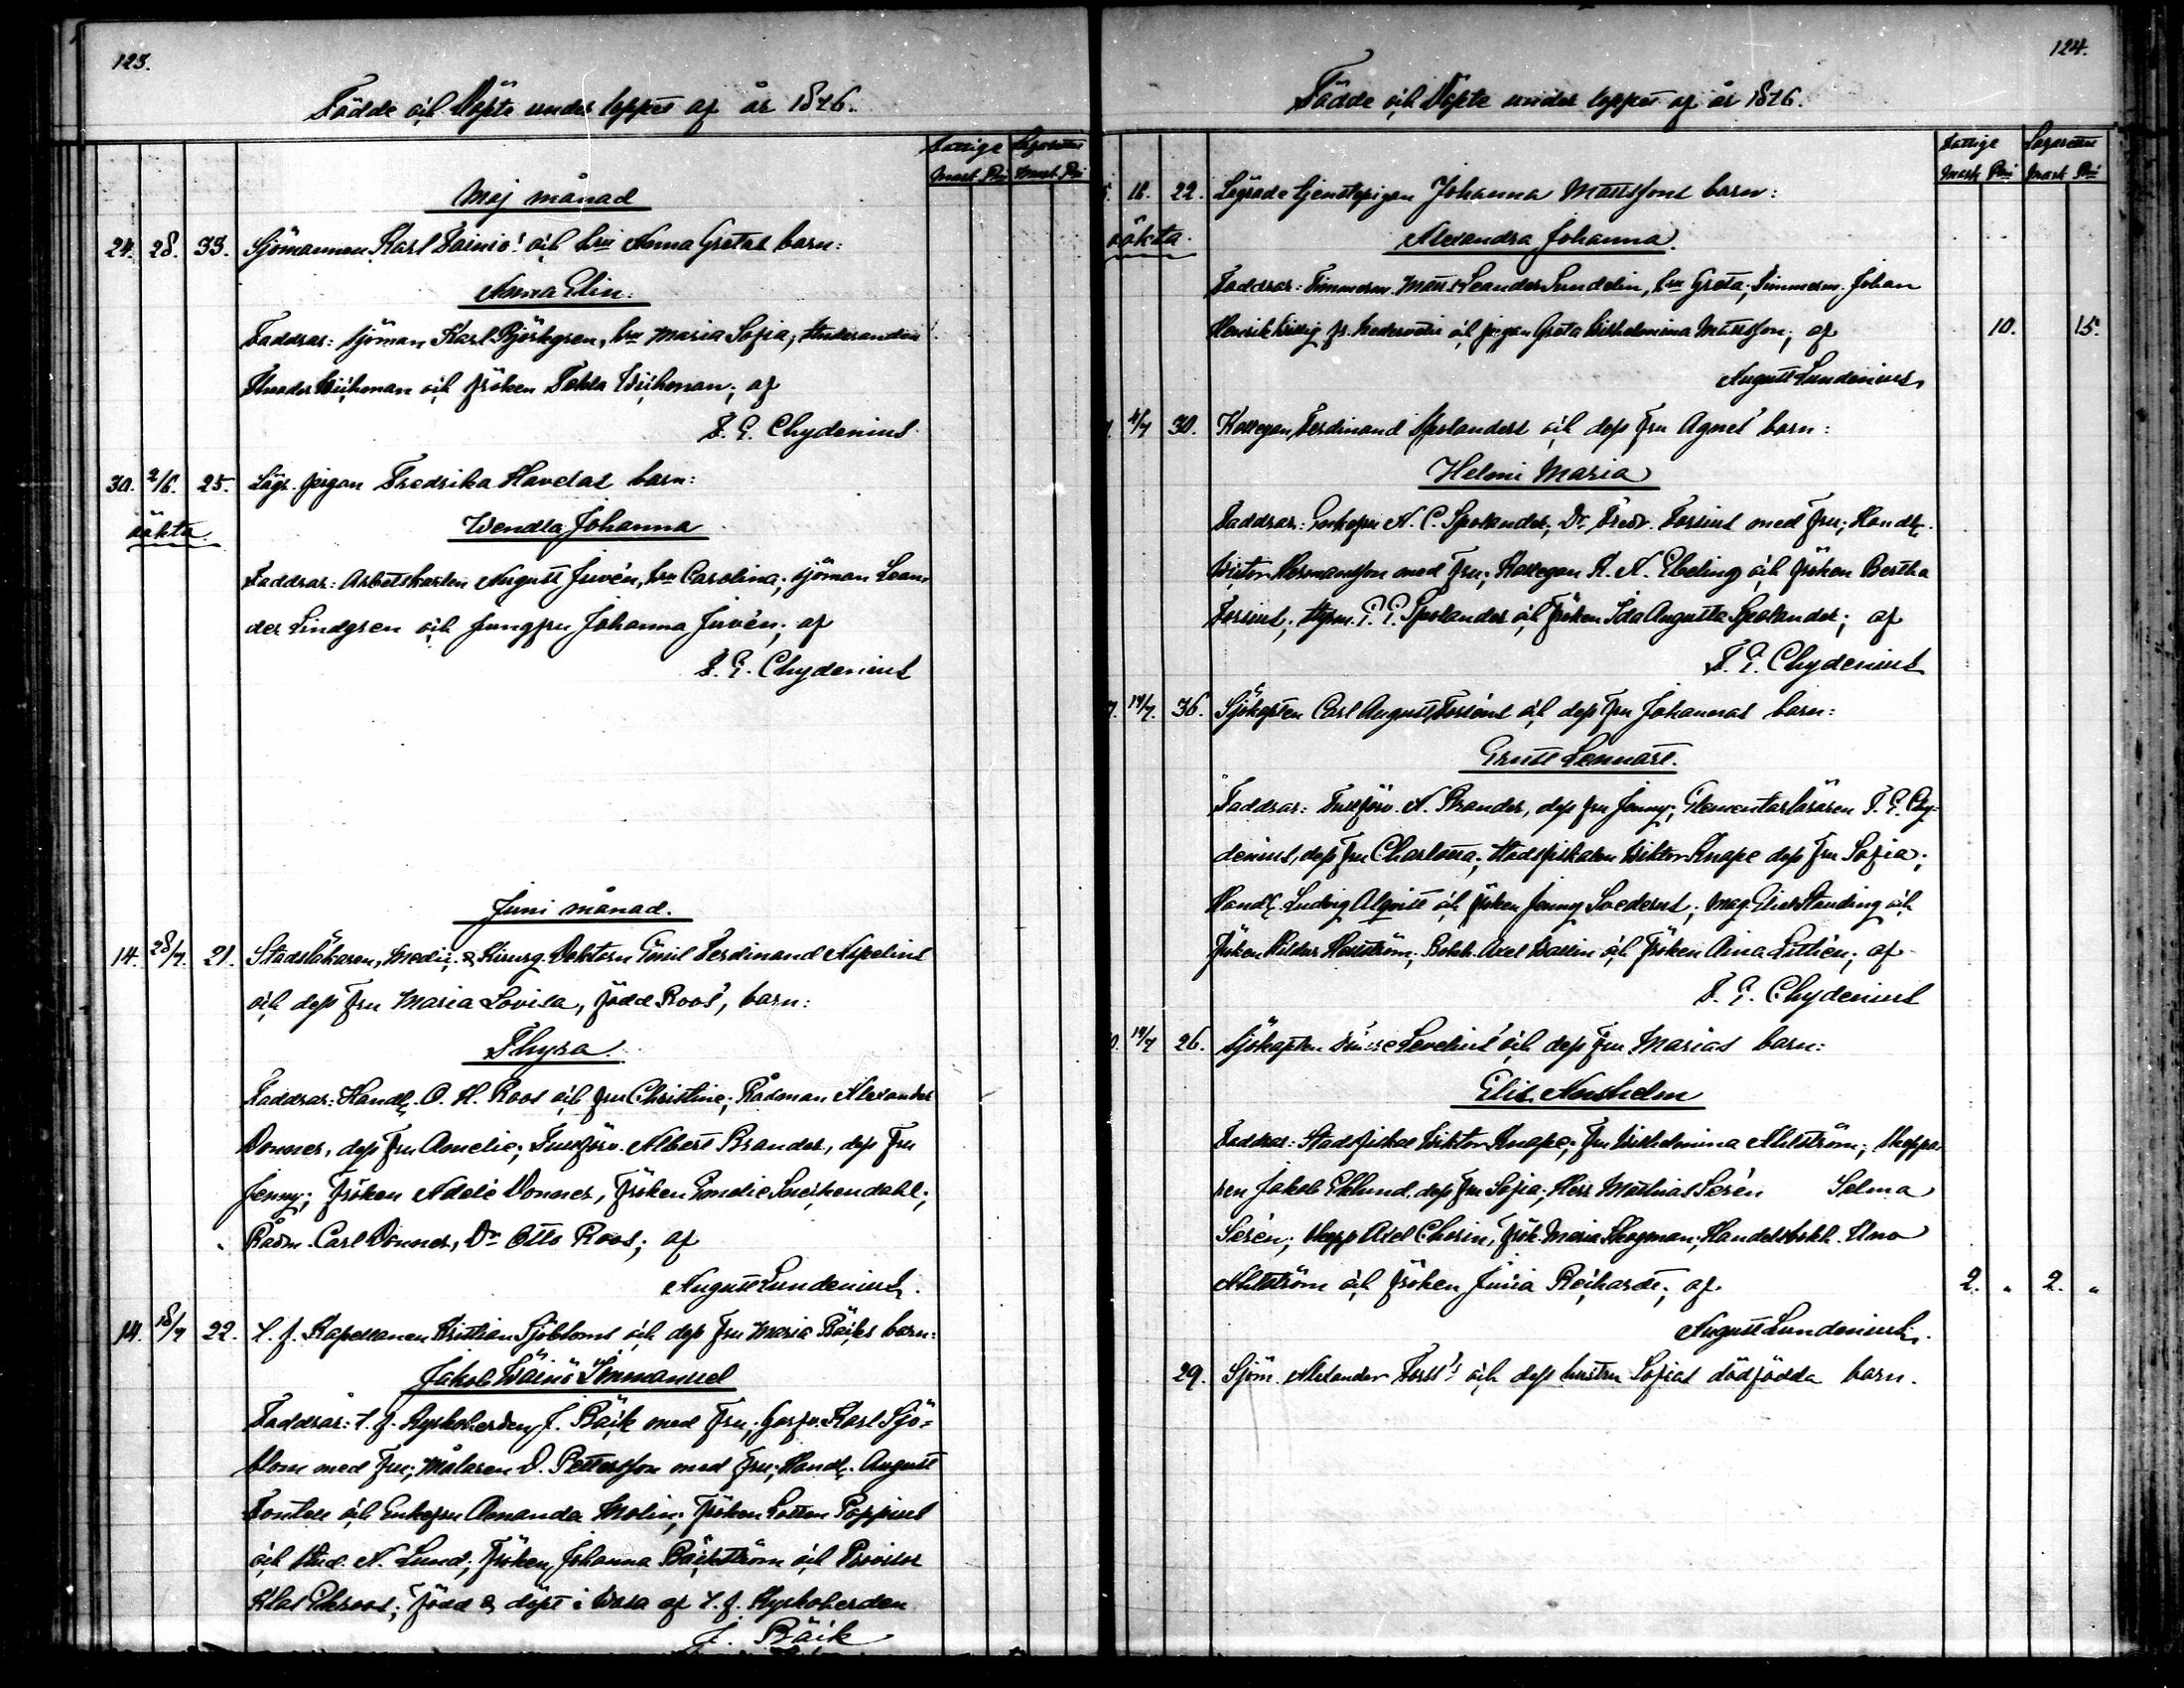 123.
Födde och Döpte under loppet af år 1876.
Fattige Lazarettet
Mark Pni Mark Pni
Maj månad
24. 28. 33. Sjömannen Karl Fainio's och hru Anna Gretas barn:
Anna Elin.
Faddrar: Sjöman Karl Björkgren, hru Maria Sofia; Studeranden
Theodor Wichman och fröken Tekla Wichman; af
F. E. Chydenius
30. 2/6. 25. Lägr. pigan Fredrika Havelas barn:
oäkta.
Wendla Johanna
Faddrar: Arbetskarlen August Juvén, hru Carolina; sjöman Lean-
der Lindgren och Jungfru Johanna Juvén; af
F. E. Chydenius
Juni månad.
14. 28/7. 21. Stadsläkaren, Medic. & Kirurg. Doktorn Emil Ferdinand Aspelins
och dess fru Maria Lovisa, född Roos', barn:
Thyra.
Faddrar: Handl. O. H. Roos och fru Christine; Rådman Alexander
Donner, dess fru Amelie; Tullförv. Albert Brander, dess fru
Jenny; Fröken Adele Donner, Fröken Emelie Sneckendahl;
Rådm. Carl Donner, Dr Otto Roos; af
August Lundenius.
14. 18/7 22. t. f. Kapellanen Kristian Sjöbloms och dess fru Maria Bäcks barn:
Jakob Wäinö Immanuel
Faddrar: t. f. Kyrkoherden J. Bäck med Fru; Garfv. Karl Sjö-
blom med Fru; Målaren D. Pettersson med Fru; Handl. August
Fontell och Enkefru Amanda Molin; Fröken Lotten Poppius
och Stud. A. Lund; Fröken Johanna Bäckström och Provisor
Klas Ekroos; född & döpt i Wasa af t. f. Kyrkoherden
J. Bäck
124.
Födde och Döpte under loppet af år 1876.
Fattige Lazarettet
Mark Pni Mark Pni
18. 22. Lägrade tjenstepigan Johanna Mattssons barn:
oäkta.
Alexandra Johanna.
Faddrar: Timmerm. Matts Leander Sundelin, hru Greta; Timmerm. Johan
Henrik fr. Nedervetil och pigan Greta Wilhelmina Mattsson; af 10. 15.
August Lundenius.
4/7 30. Kollegan Ferdinand Spolanders och dess fru Agnes' barn:
Helmi Maria
Faddrar: Enkefru A. C. Spolander; Dr Fredr. Forsius med Fru; Handl.
Wictor Hermansson med Fru; Kollegan K. A. Ebeling och fröken Bertha
Forsius; Styrm. P. P. Spolander och Fröken Ida Augusta Spolander; af
F. E. Chydenius
14/7. 36. Sjökapten Carl August Forséns och dess fru Johannas barn:
Ernst Lennart.
Faddrar: Tullförv. A. Brander, dess fru Jenny; Elementarläraren F. E. Chy-
denius, dess fru Charlotta; Stadsfiskalen Wiktor Knape dess fru Sofia;
Handl. Ludvig Alqvist och fröken Jenny Soederus; Mag. Elis Standing och
fröken Hildur Hallström; Bokh. Axel Wallin och Fröken Aina Lithén; af
F. E. Chydenius
19/7 26. Sjökapten Levelius' och dess fru Marias barn:
Elis Anshelm
Faddrar: Stadsfiskal Wiktor Knape; Fru Wilhelmina Ahlström; Skeppa-
ren Jakob Eklund, dess fru Sofia; Herr Mathias Serén Selma
Serén; Skepp Axel Chorin, Frök. Maria Skogman; Handelsbokh. Uno
Ahlström och fröken Junia Reichardt; af 2. „ 2. „
August Lundenius.
29. Sjöm. Alexander Forss's och dess hustru Sofias dödfödda barn.